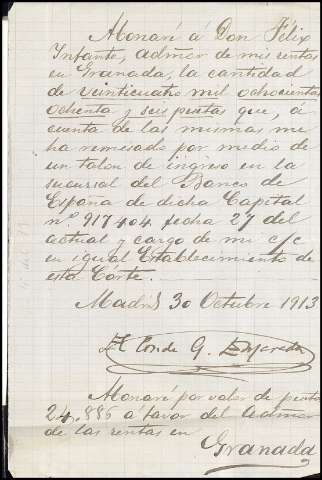 Abonaré á Don Félix
Infante, admor de mis rentas
en Granada, la cantidad
de veinticuatro mil ochocientas
ochenta y seis pestas que, á
cuenta de las mismas me
ha remesado por medio de
un talon de ingreso en la
sucursal del Banco de
España de dicha Capital
nº. 917404 fecha 27 del
actual y cargo de mi c/c
en igual Establecimiento de
esta Corte.
Madrid 30 Octubre 1913
El Conde G.
Abonaré por valor de pesetas
24.886 a favor del admor
de las rentas en
Granada